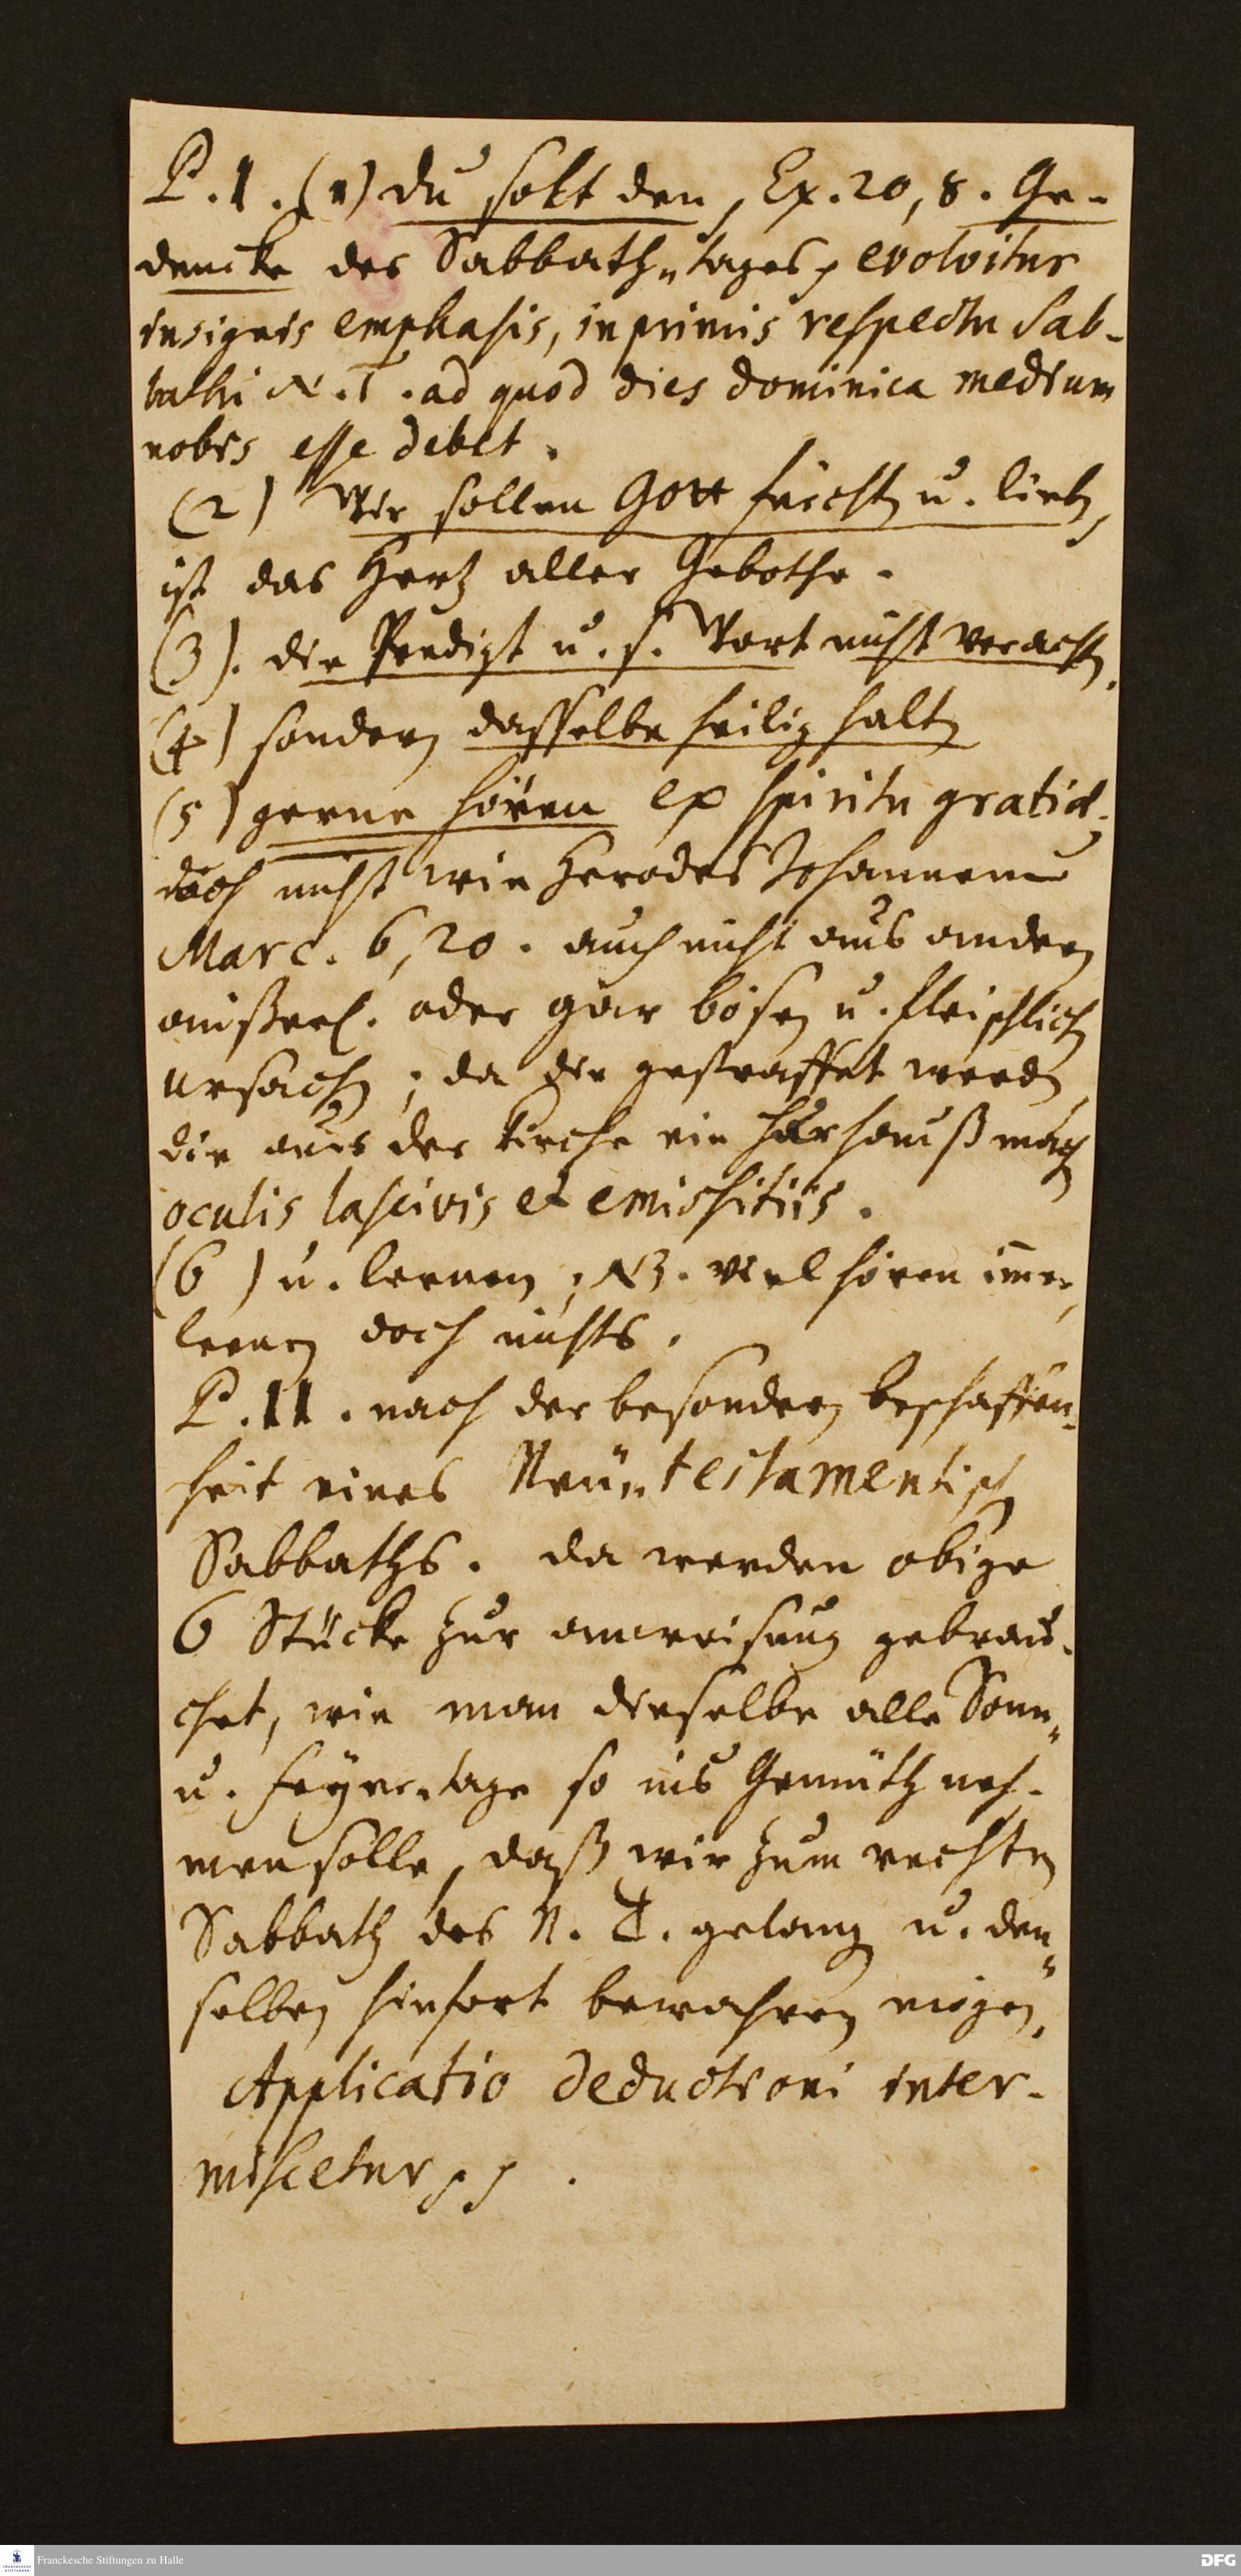 P. I. (1) du solt den, Ex. 20, 8. Ge-
dencke des Sabbath=tages, evolvitur
insignis emphasis, inprimis respectu Sab-
bathi N. T. ad quod dies dominica medium
nobis esse debet.
(2) Wir sollen Gott fürchten u. lieben,
ist das Hertz aller Gebothe.
(3). die Predigt u. s. Wort nicht verachten.
(4) sondern dasselbe heilig halten
(5) gerne hören ex spiritu gratiae;
doch nicht wie Herodes Johannem
Marc. 6, 20. auch nicht aus andern
äußerl. oder gar bösen u. fleischlichen
Ursachen; da die gestraffet werden
die aus der Kirche ein Hurhauß machen
oculis lascivis et emissitiis.
(6) u. lernen; NB. viel hören immer,
lernen doch nichts.
P. II. nach der besondern beschaffen-
heit eines Neu=testamentischen
Sabbaths. da werden obige
6 Stücke zur anweisung gebrau-
chet, wie man dieselbe alle Sonn=
u. Feyer=tage so ins Gemüth neh-
men solle, daß wir zum rechten
Sabbath des N. T. gelangen u. den=
selben hinfort bewahren mögen,
Applicatio deductioni inter-
miscetur pp.